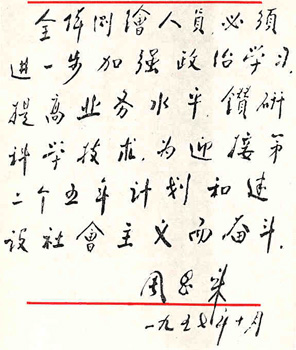 全体測繪人員,必須
進一步加强政治学习,
提高业务水平,鑽研
科学技术,为迎接第
二个五年計划和建
設社會主义而奋斗.
周恩来
一九五七年十月